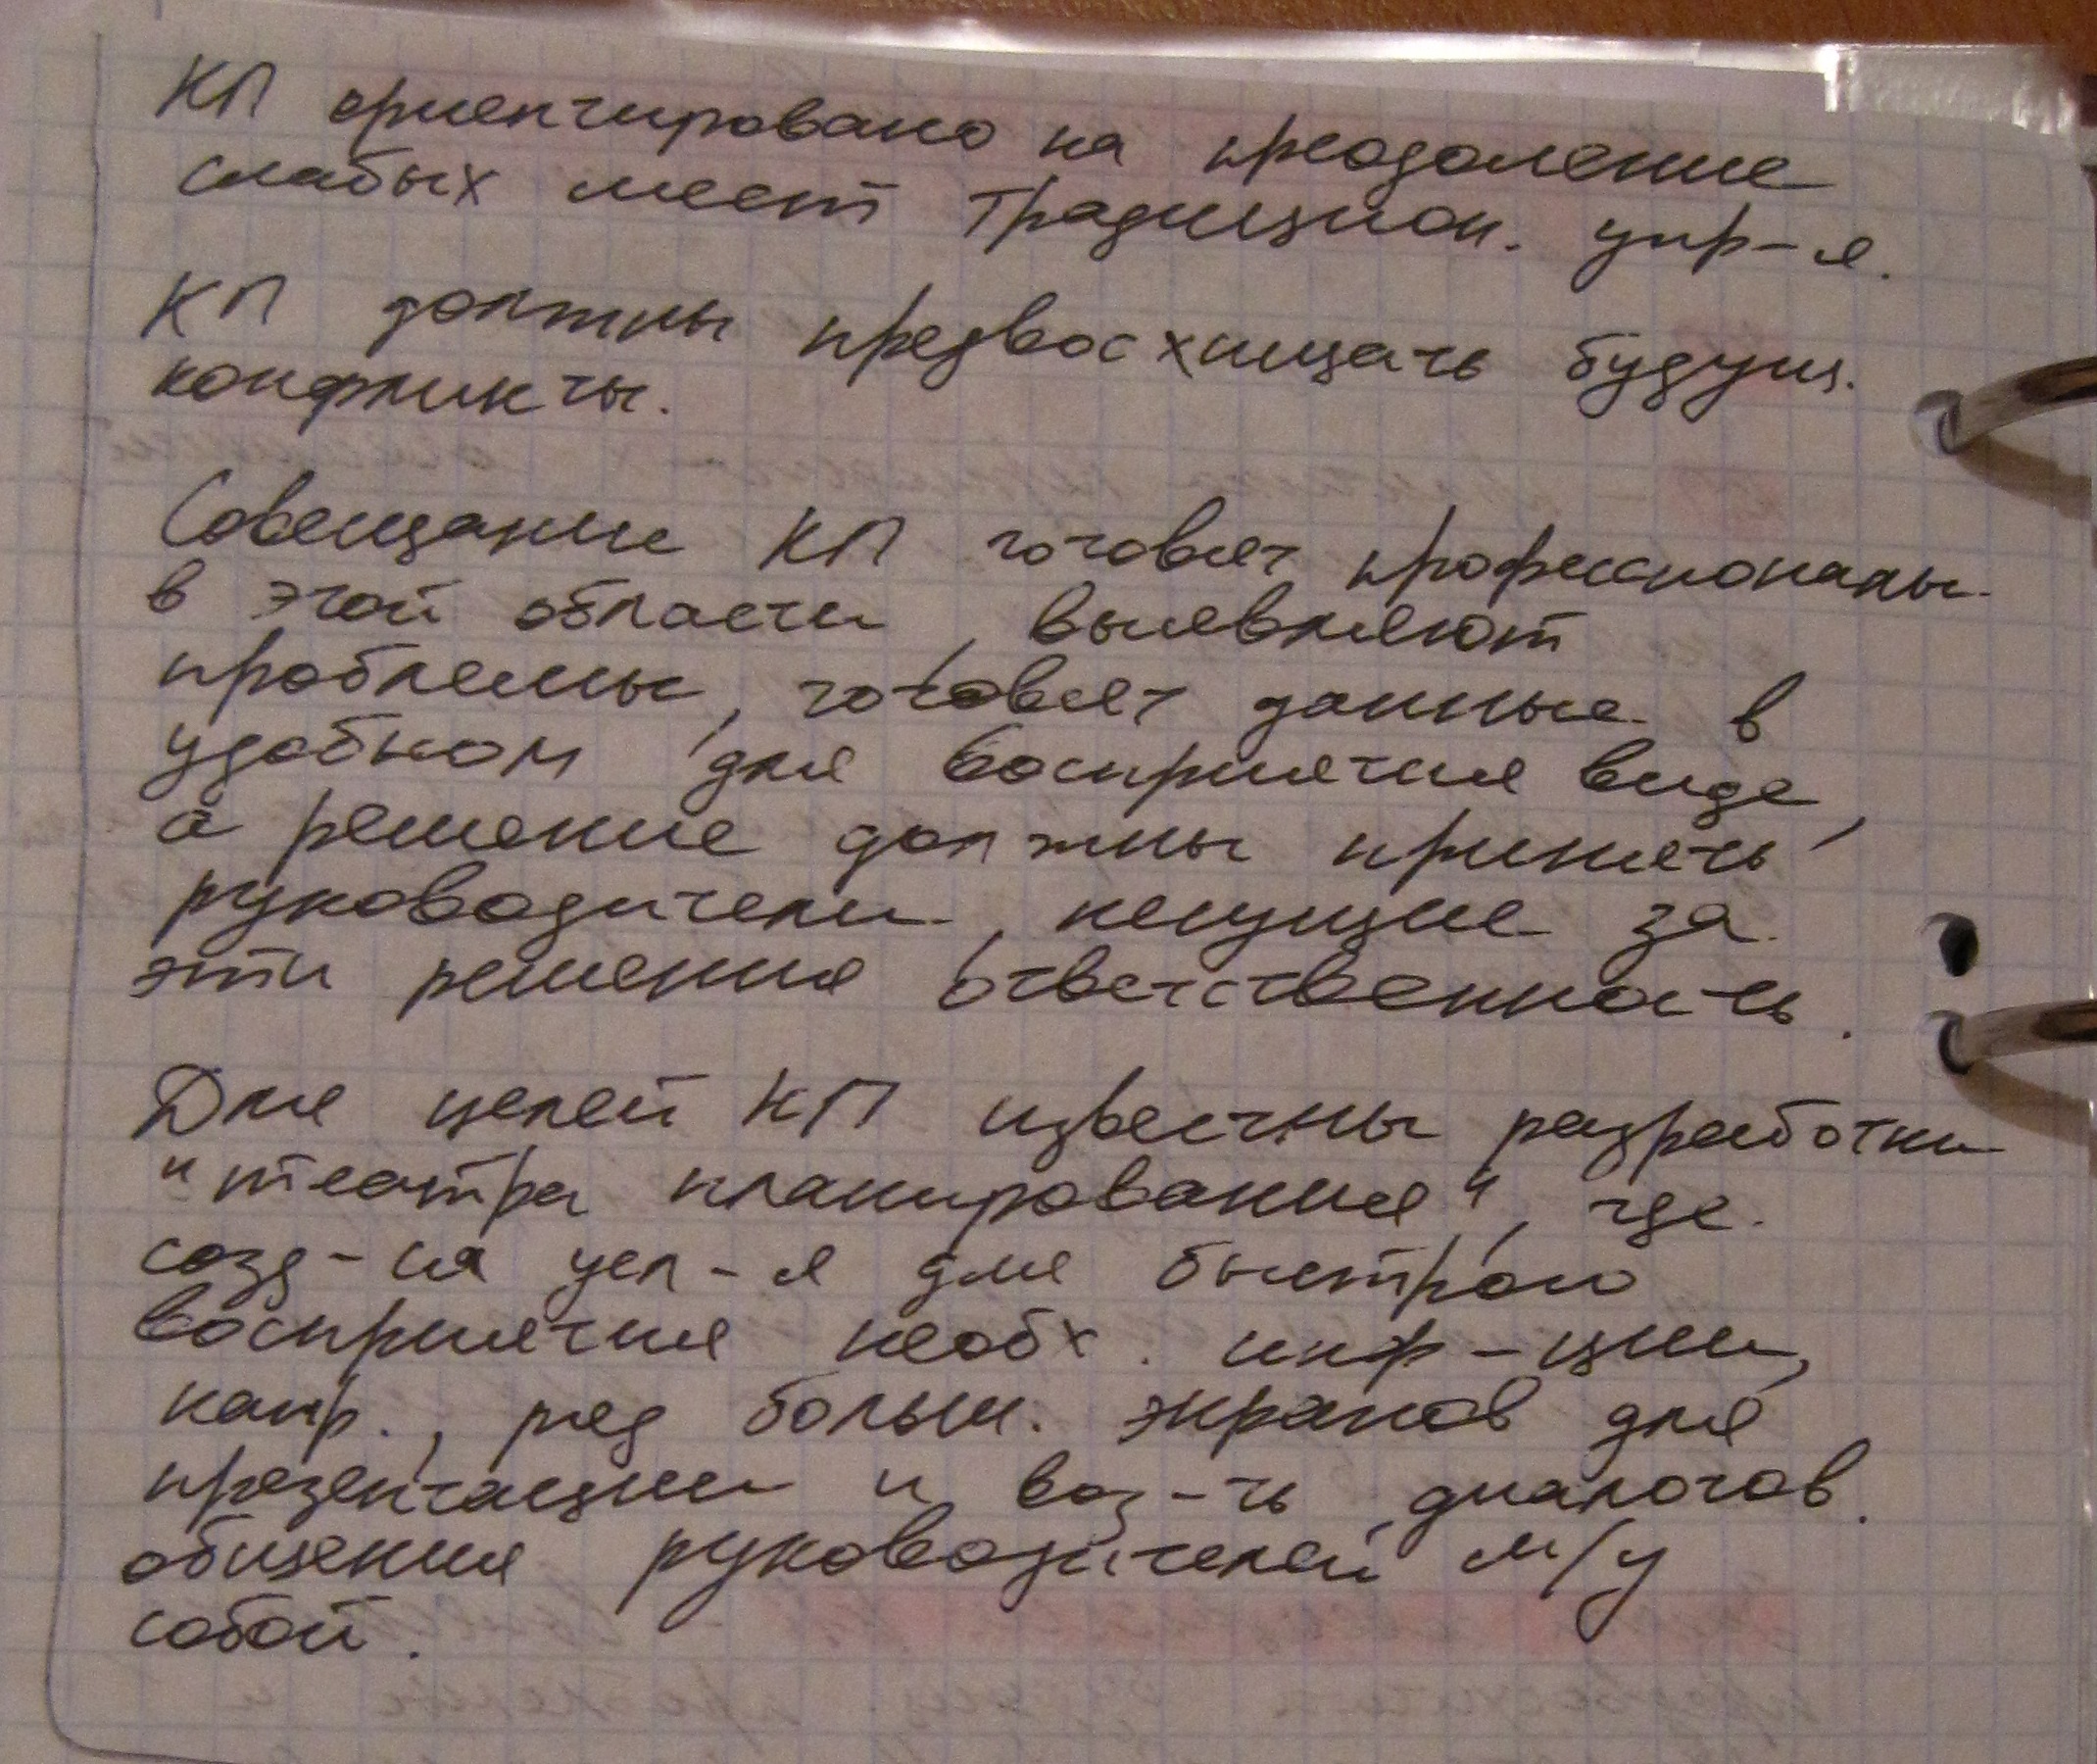 КП ориентировано на преодоление
слабых мест традицион. упр-я.
КП должны предвосхищать будущ.
конфликты.
Совещание КП готовят профессионалы
в этой области, выявляют
проблемы, готовят данные в
удобном для восприятия виде,
а решение должны принять
руководители, несущие за
эти решения ответственность.
Для целей КП известны разработки
"театра планирования", где
созд-ся усл-я для быстрого
восприятия необх. инф-ции,
напр., ряд больш. экранов для
презентации и воз-ть диалогов.
общения руководителей м/у
собой.